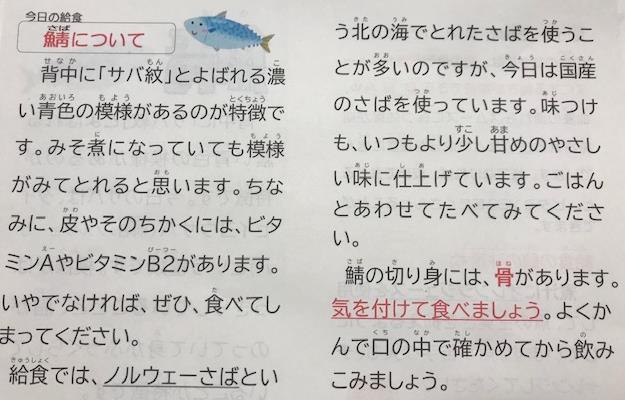 今日の給食
鯖について
背中に「サバ紋」とよばれる濃
い青色の模様があるのが特徴で
す。みそ煮になっていても模様
がみてとれると思います。ちな
みに、皮やそのちかくには、ビタ
ミンAやビタミンB2があります。
いやでなければ、ぜひ、食べてし
まってください。
給食では、ノルウェーさばとい
う北の海でとれたさばを使うこ
とが多いのですが、今日は国産
のさばを使っています。味つけ
も、いつもより少し甘めのやさし
い味に仕上げています。ごはん
とあわせてたべてみてくださ
い。
鯖の切り身には、骨があります。
気を付けて食べましょう。よくか
んで口の中で確かめてから飲み
こみましょう。